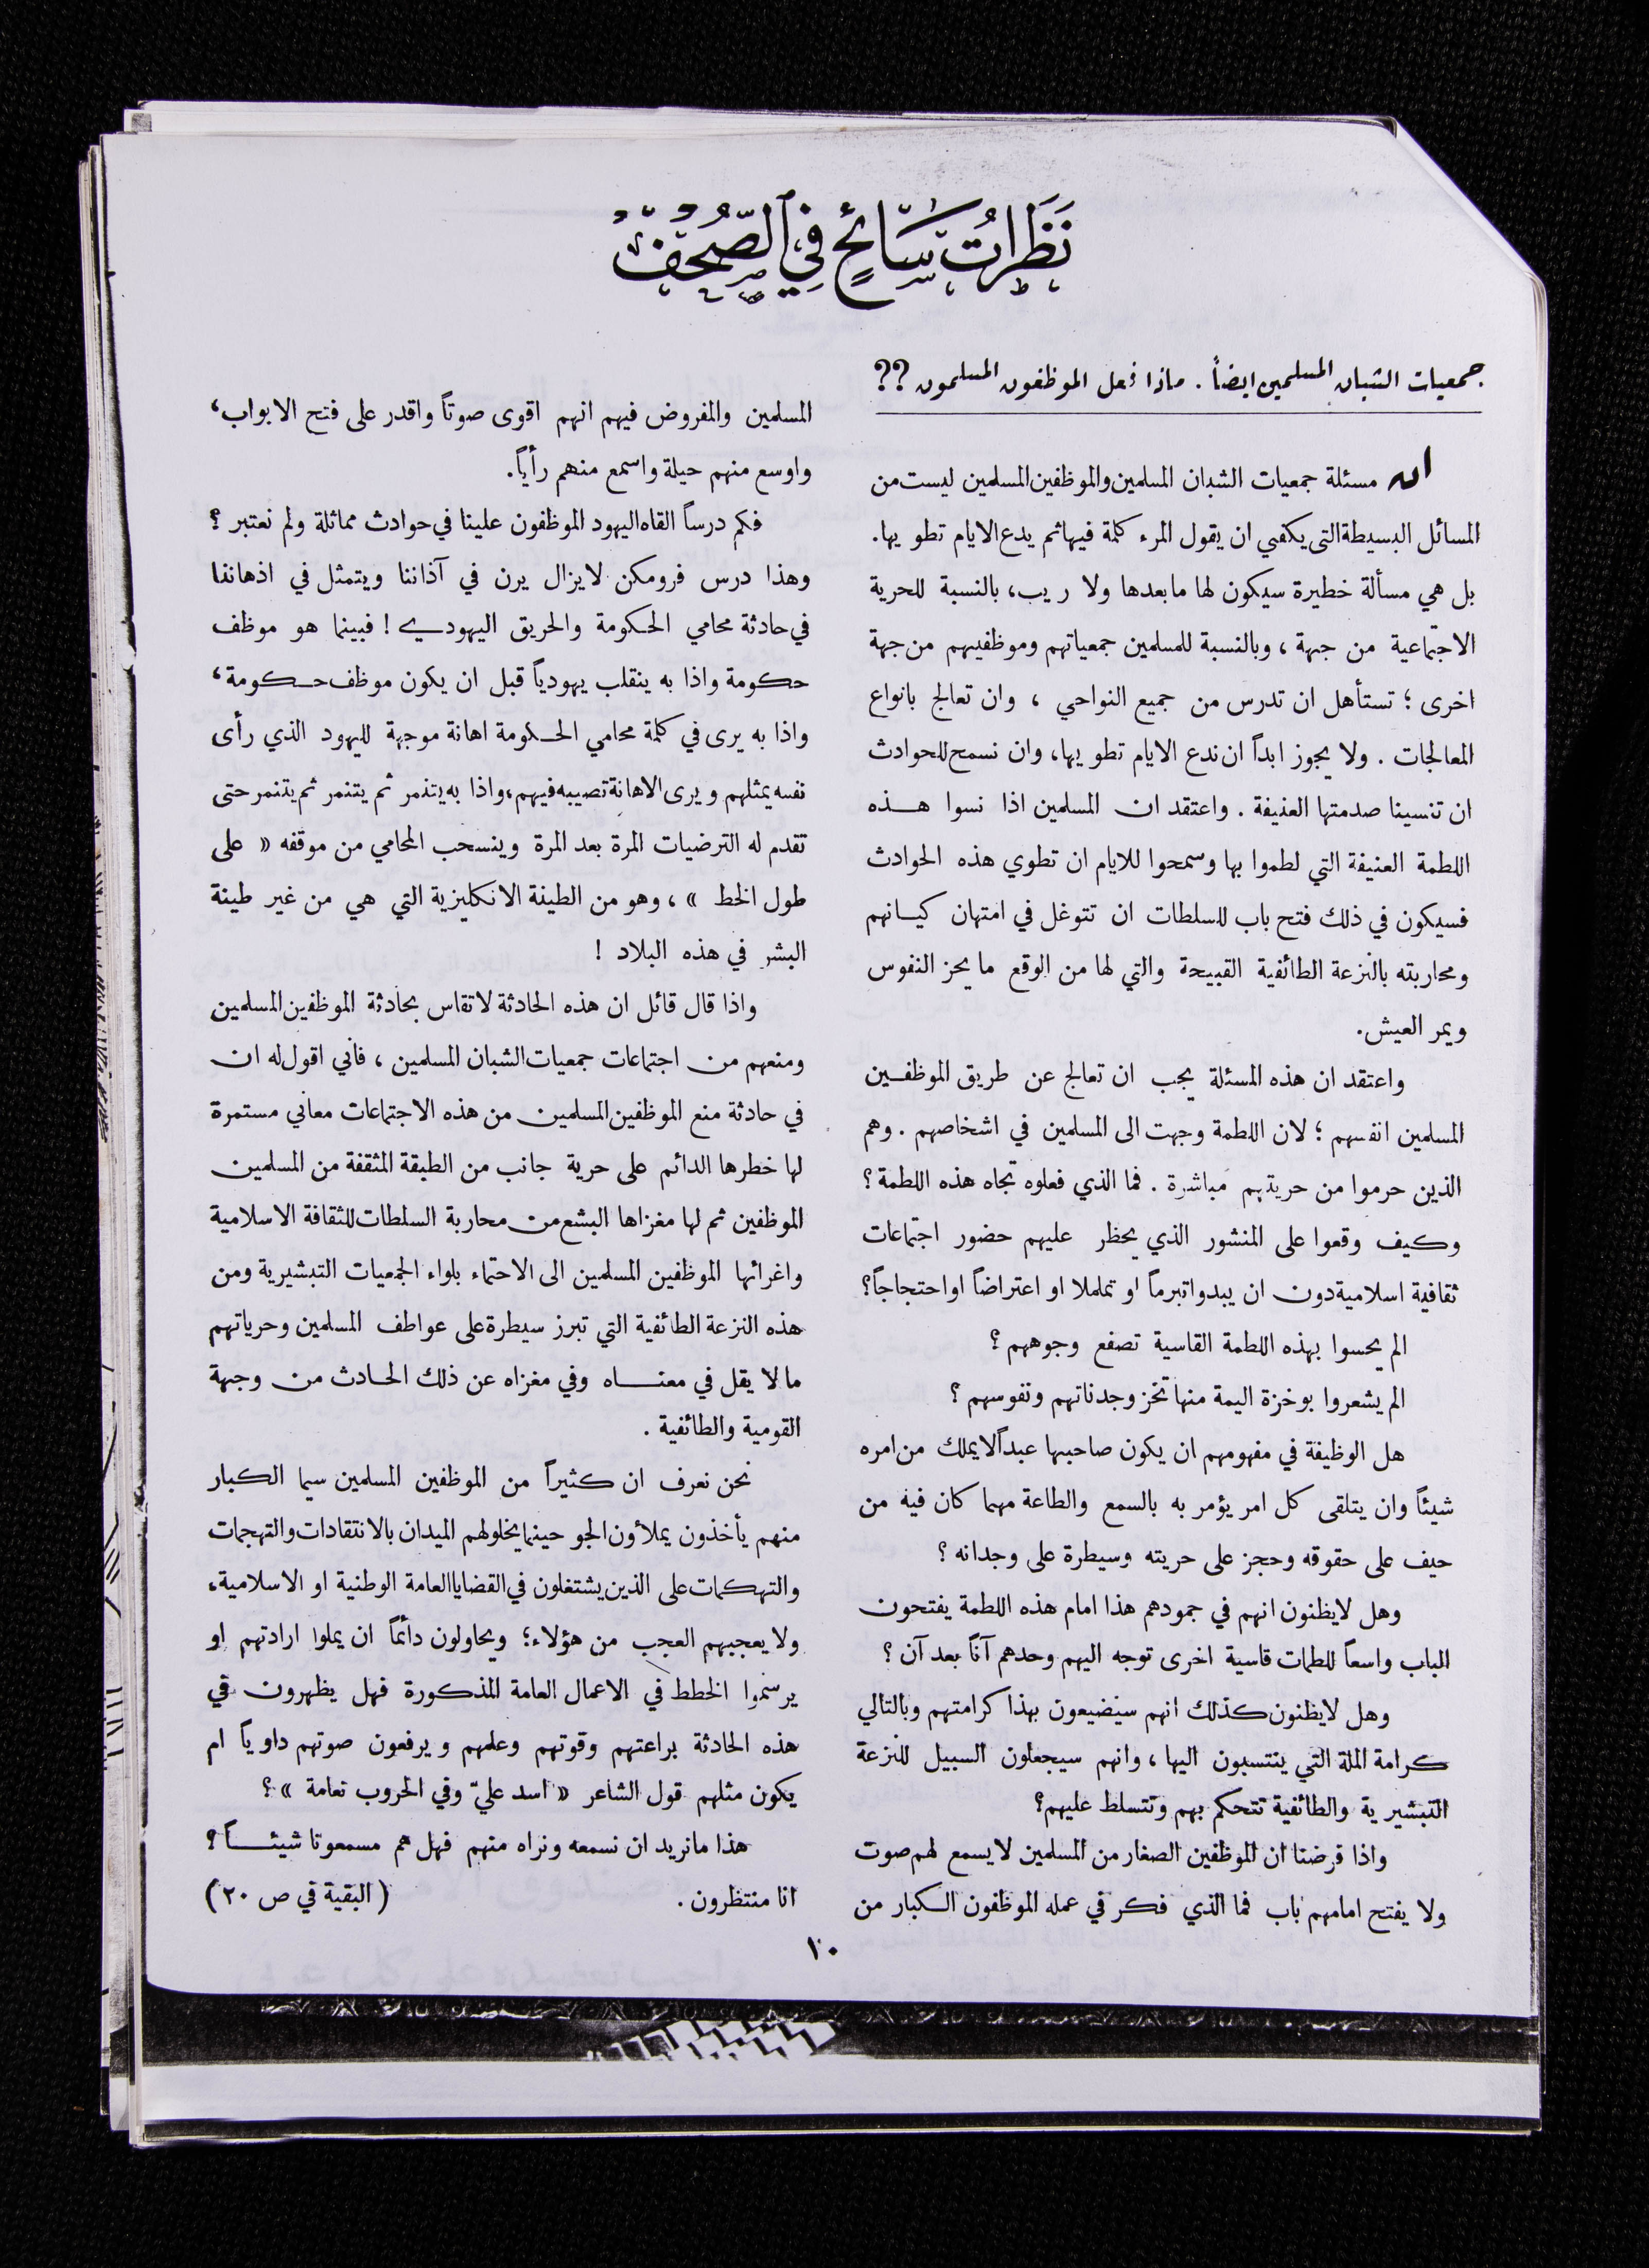 نَظَرَاتُ سَائِحٍ فِي الصُّحُف
جمعيات الشبان المسلمين ايضاً . ماذا فعل الموظفون المسلمون ؟؟
ان مسئلة جمعيات الشبان المسلمين والموظفين المسلمين ليست من
المسائل البسيطة التي يكفي ان يقول المرء كلمة فيها ثم يدع الايام تطويها.
بل هي مسألة خطيرة سيكون لها ما بعدها ولا ريب، بالنسبة للحرية
الاجتماعية من جهة ، وبالنسبة للمسلمين جمعياتهم وموظفيهم من جهة
اخرى ؛ تستأهل ان تدرس من جميع النواحي ، وان تعالج بانواع
المعالجات . ولا يجوز ابداً ان ندع الايام تطويها، وان نسمح للحوادث
ان تنسينا صدمتها العنيفة . واعتقد ان المسلمين اذا نسوا هذه
اللطمة العنيفة التي لطموا بها وسمحوا للايام ان تطوي هذه الحوادث
فسيكون في ذلك فتح باب للسلطات ان تتوغل في امتهان كيانهم
ومحاربته بالنزعة الطائفية القبيحة والتي لها من الوقع ما يحز النفوس
ويمر العيش.
واعتقد ان هذه المسئلة يجب ان تعالج عن طريق الموظفين
المسلمين انفسهم ؛ لان اللطمة وجهت الى المسلمين في اشخاصهم . وهم
الذين حرموا من حريتهم مباشرة . فما الذي فعلوه تجاه هذه اللطمة ؟
وكيف وقعوا على المنشور الذي يحظر عليهم حضور اجتماعات
ثقافية اسلامية دون ان يبدوا تبرماً او تململا او اعتراضاً او احتجاجاً؟
الم يحسوا بهذه اللطمة القاسية تصفع وجوههم ؟
الم يشعروا بوخزة اليمة منها تخز وجدناتهم ونفوسهم ؟
هل الوظيفة في مفهومهم ان يكون صاحبها عبداً لا يملك من امره
شيئاً وان يتلقى كل امر يؤمر به بالسمع والطاعة مهما كان فيه من
حيف على حقوقه وحجز على حريته وسيطرة على وجدانه ؟
وهل لا يظنون انهم في جمودهم هذا امام هذه اللطمة يفتحون
الباب واسعاً للطمات قاسية اخرى توجه اليهم وحدهم آناً بعد آن ؟
وهل لا يظنون كذلك انهم سيضيعون بهذا كرامتهم وبالتالي
كرامة الملة التي ينتسبون اليها ، وانهم سيجعلون السبيل للنزعة
التبشيرية والطائفية تتحكم بهم وتتسلط عليهم؟
واذا فرضنا ان الموظفين الصغار من المسلمين لا يسمع لهم صوت
ولا يفتح امامهم باب فما الذي فكر في عمله الموظفون الكبار من
المسلمين والمفروض فيهم انهم اقوى صوتاً واقدر على فتح الابواب،
واوسع منهم حيلة واسمع منهم رأياً.
فكم درساً القاه اليهود الموظفون علينا في حوادث مماثلة ولم نعتبر ؟
وهذا درس فرومكن لا يزال يرن في آذاننا ويتمثل في اذهاننا
في حادثة محامي الحكومة والحريق اليهودي ! فبينما هو موظف
حكومة واذا به ينقلب يهودياً قبل ان يكون موظف حكومة،
واذا به يرى في كلمة محامي الحكومة اهانة موجهة لليهود الذي رأى
نفسه يمثلهم ويرى الاهانة تصيبه فيهم، واذا به يتذمر ثم يتنمر ثم يتنمر حتى
تقدم له الترضيات المرة بعد المرة وينسحب المحامي من موقفه « على
طول الخط » ، وهو من الطينة الانكليزية التي هي من غير طينة
البشر في هذه البلاد !
واذا قال قائل ان هذه الحادثة لا تقاس بحادثة الموظفين المسلمين
ومنعهم من اجتماعات جمعيات الشبان المسلمين ، فاني اقول له ان
في حادثة منع الموظفين المسلمين من هذه الاجتماعات معاني مستمرة
لها خطرها الدائم على حرية جانب من الطبقة المثقفة من المسلمين
الموظفين ثم لها مغزاها البشع من محاربة السلطات للثقافة الاسلامية
واغرائها الموظفين المسلمين الى الاحتماء بلواء الجمعيات التبشيرية ومن
هذه النزعة الطائفية التي تبرز سيطرة على عواطف المسلمين وحرياتهم
ما لا يقل في معناه وفي مغزاه عن ذلك الحادث من وجهة
القومية والطائفية .
نحن نعرف ان كثيراً من الموظفين المسلمين سيما الكبار
منهم يأخذون يملأون الجو حينما يخلو لهم الميدان بالانتقادات والتهجمات
والتهكمات على الذين يشتغلون في القضايا العامة الوطنية او الاسلامية،
ولا يعجبهم العجب من هؤلاء؛ ويحاولون دائماً ان يملوا ارادتهم او
يرسموا الخطط في الاعمال العامة المذكورة فهل يظهرون في
هذه الحادثة براعتهم وقوتهم وعلمهم ويرفعون صوتهم داوياً ام
يكون مثلهم قول الشاعر « اسد عليّ وفي الحروب نعامة » ؟
هذا ما نريد ان نسمعه ونراه منهم فهل هم مسمعونا شيئاً ؟
انا منتظرون . ( البقية في ص ٢٠ )
١٠